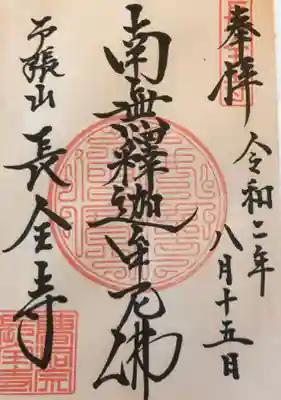 奉拝
令和二年
八月十五日
南無釋迦牟尼佛
張山
長全寺